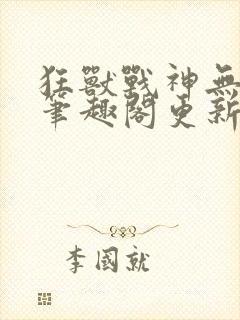 狂獸戰神無
筆趣閣更新
李國就